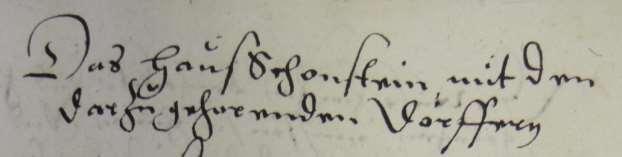 Das Hauß Schonstein mit den
darzu gehorenden Dörffern